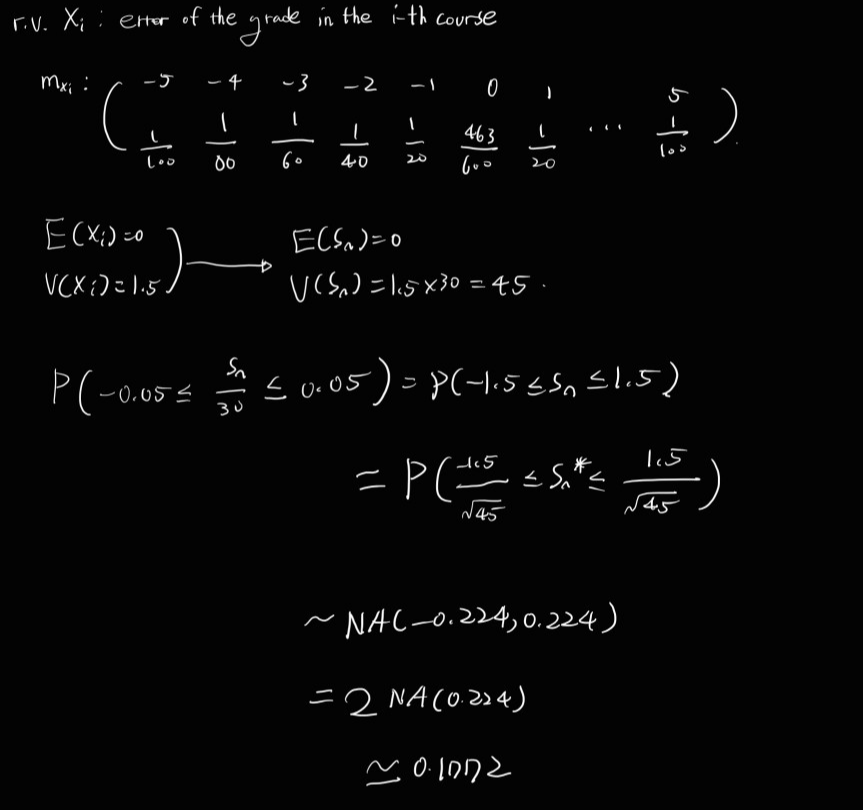 r.v. Xᵢ : error of the grade in the i-th course
m_{xᵢ} : ( -5 -4 -3 -2 -1 0 1 5 )
1/100 1/80 1/60 1/40 1/20 463/600 1/20 ... 1/100
E(Xᵢ)=0 E(Sₙ)=0
V(Xᵢ)=1.5 ) → V(Sₙ)=1.5×30=45.
P(-0.05≤ Sₙ/30 ≤0.05)=P(-1.5≤Sₙ≤1.5)
=P(-1.5/√45 ≤Sₙ*≤ 1.5/√45)
~NA(-0.224,0.224)
=2 NA(0.224)
≃0.1772